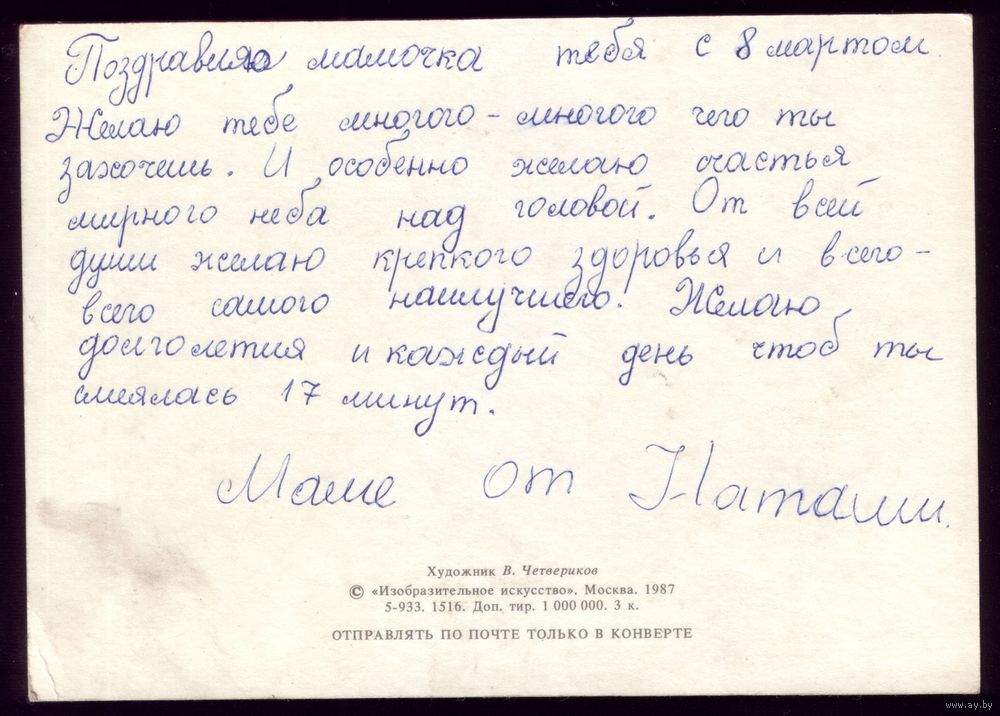 Поздравляю мамочка тебя с 8 мартом.
Желаю тебе многого-многого чего ты
захочешь. И особенно желаю счастья
мирного неба над головой. От всей
души желаю крепкого здоровья и всего-
всего самого наилучшего. Желаю
долголетия и каждый день чтоб ты
смеялась 17 минут.
Маме от Наташи.
Художник В. Четвериков
© «Изобразительное искусство». Москва. 1987
5-933. 1516. Доп. тир. 1 000 000. 3 к.
ОТПРАВЛЯТЬ ПО ПОЧТЕ ТОЛЬКО В КОНВЕРТЕ
www.ay.by